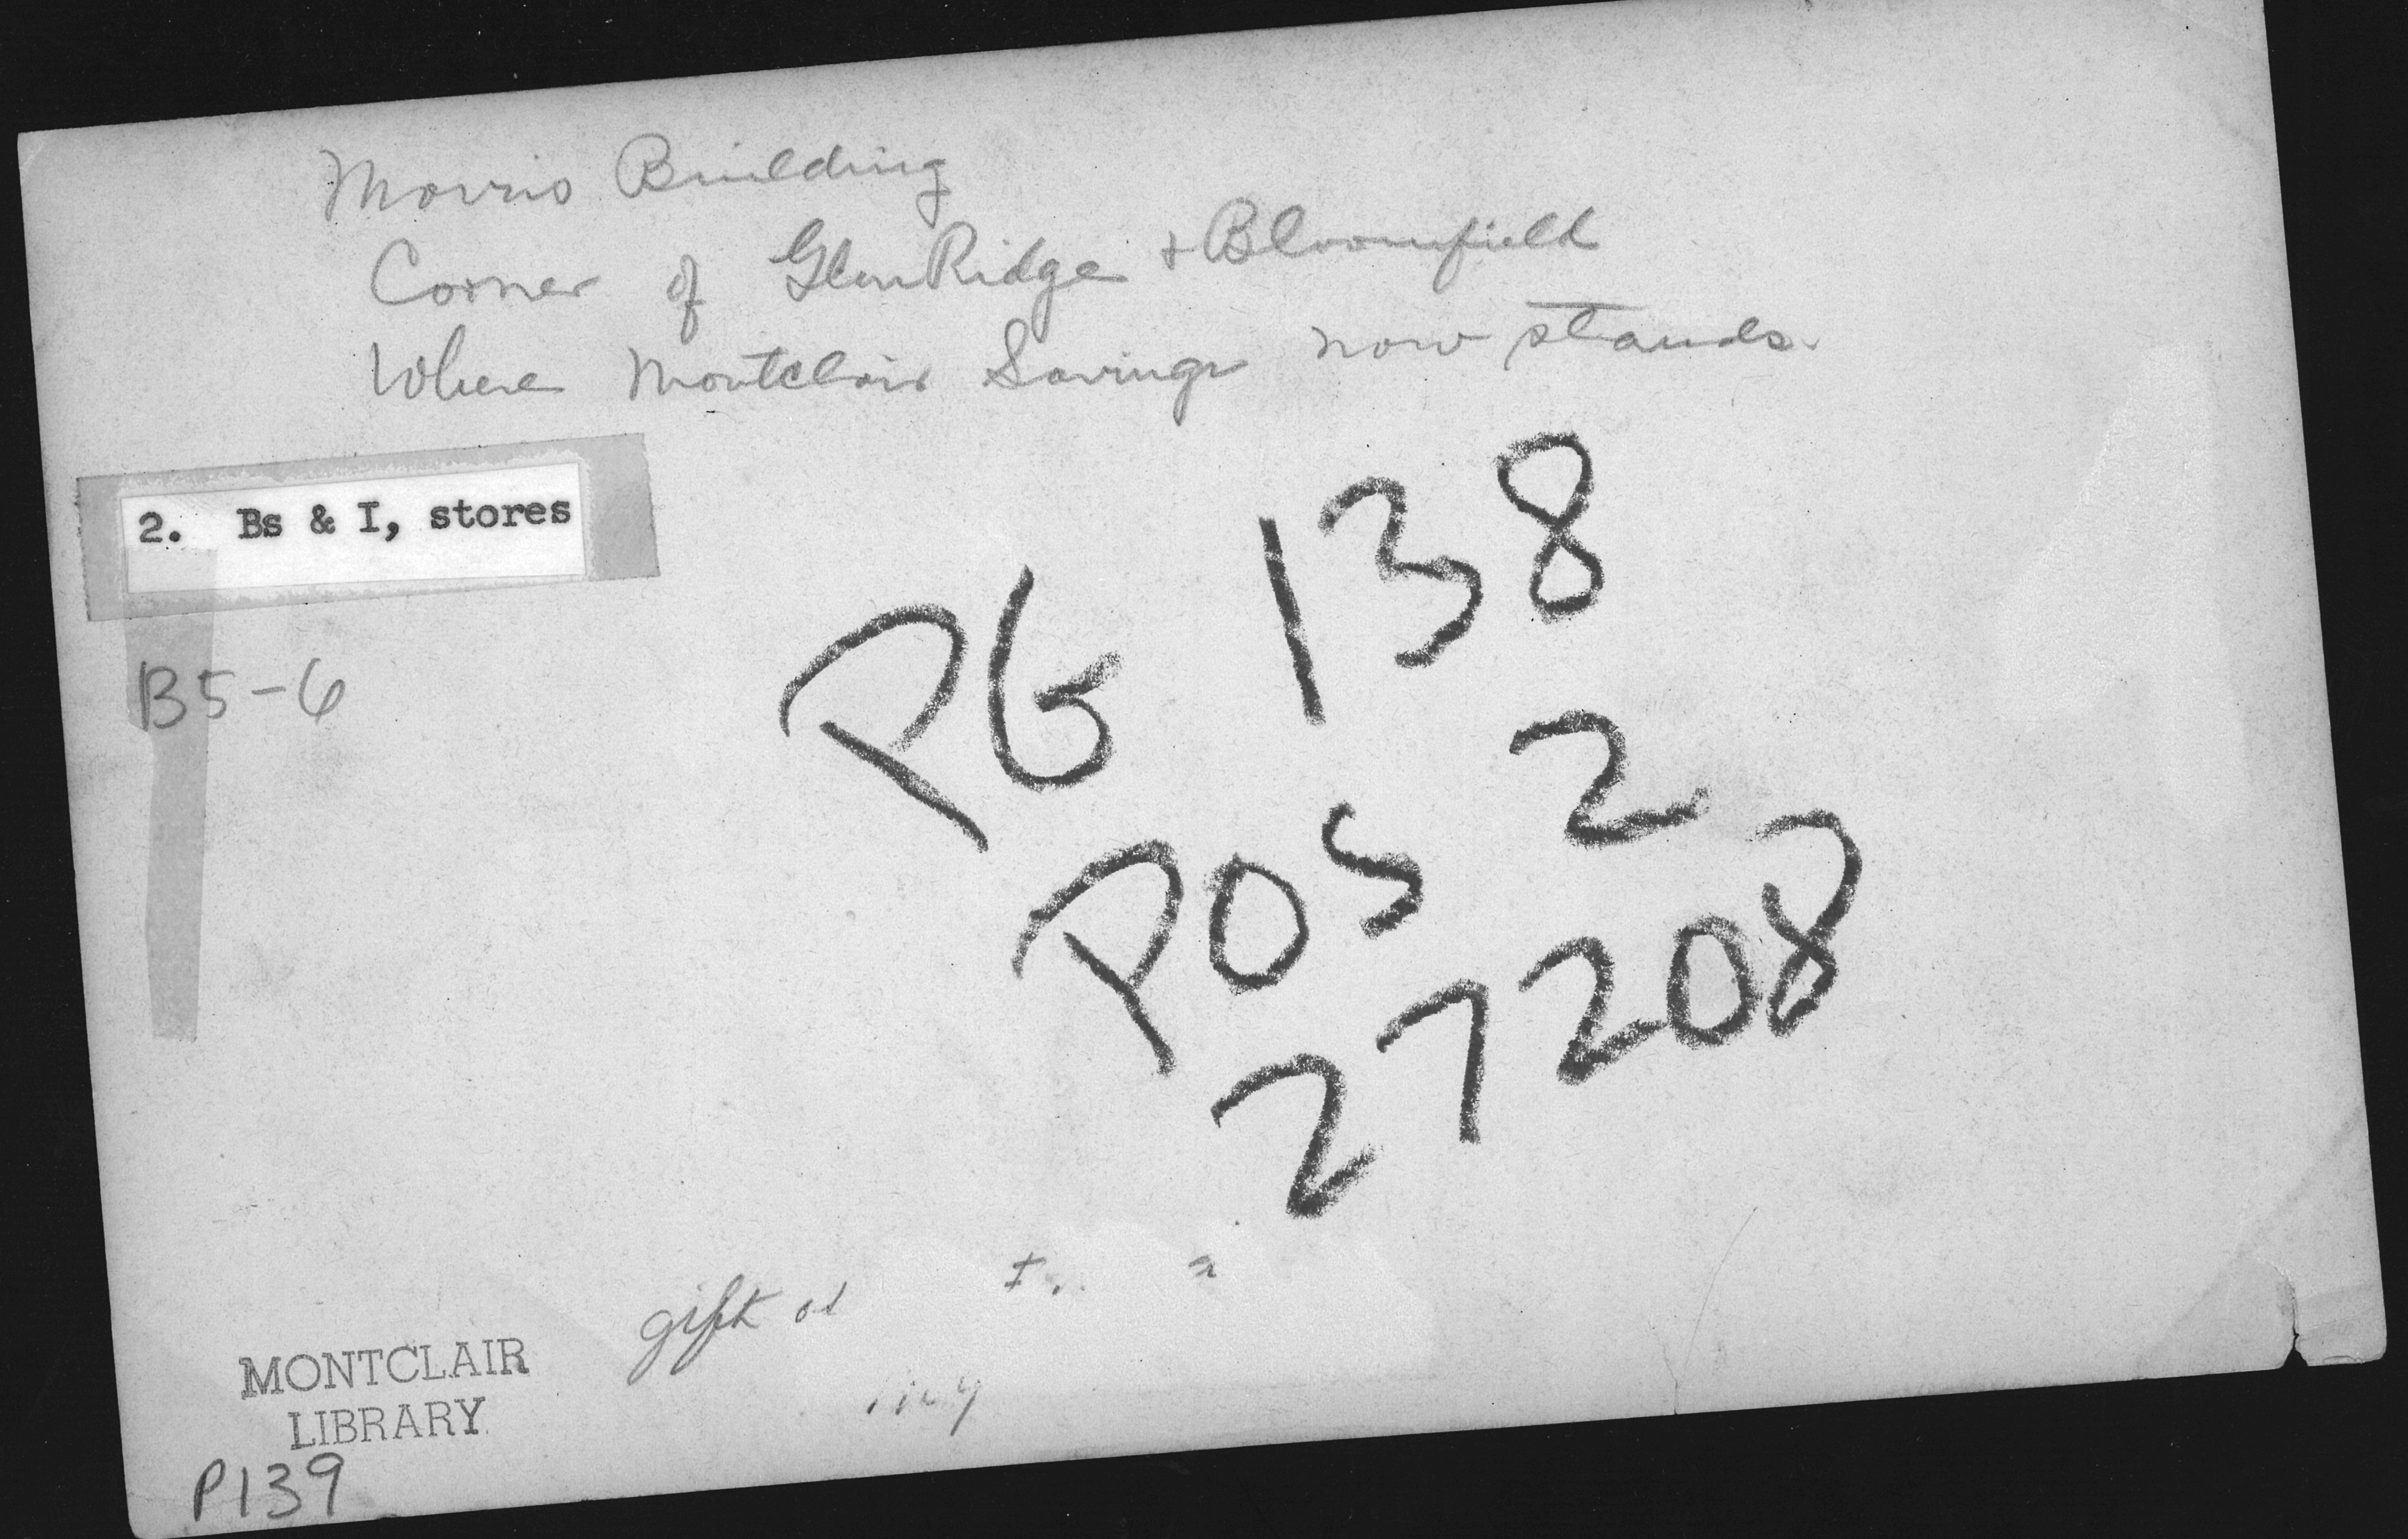 Morris Building
Corner of Glen Ridge + Bloomfield
Where Montclair Savings now stands.
2. Bs & I, stores
B5-6
PG 138
POS 2
27208
gift of
MONTCLAIR
LIBRARY
P139